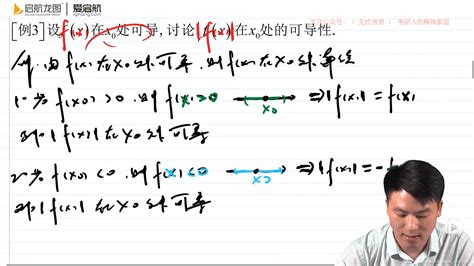 启航龙图 爱启航
iqihang.com
[例3]设f(x)在x₀处可导,讨论|f(x)|在x₀处的可导性.
解:由f(x)在x₀处可导,则f(x)在x₀处连续
1° 若f(x₀)>0,则f(x)>0 x₀ ⇒|f(x)|=f(x)
即|f(x)|在x₀处可导
2° 若f(x₀)<0,则f(x)<0 x₀ ⇒|f(x)|=-f
即|f(x)|在x₀处可导